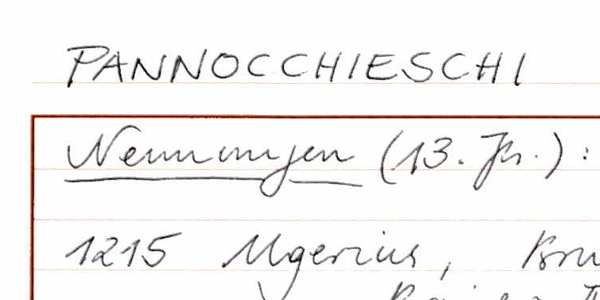 PANNOCCHIESCHI
Nennungen (13. Jh.):
1215 Ugerius,